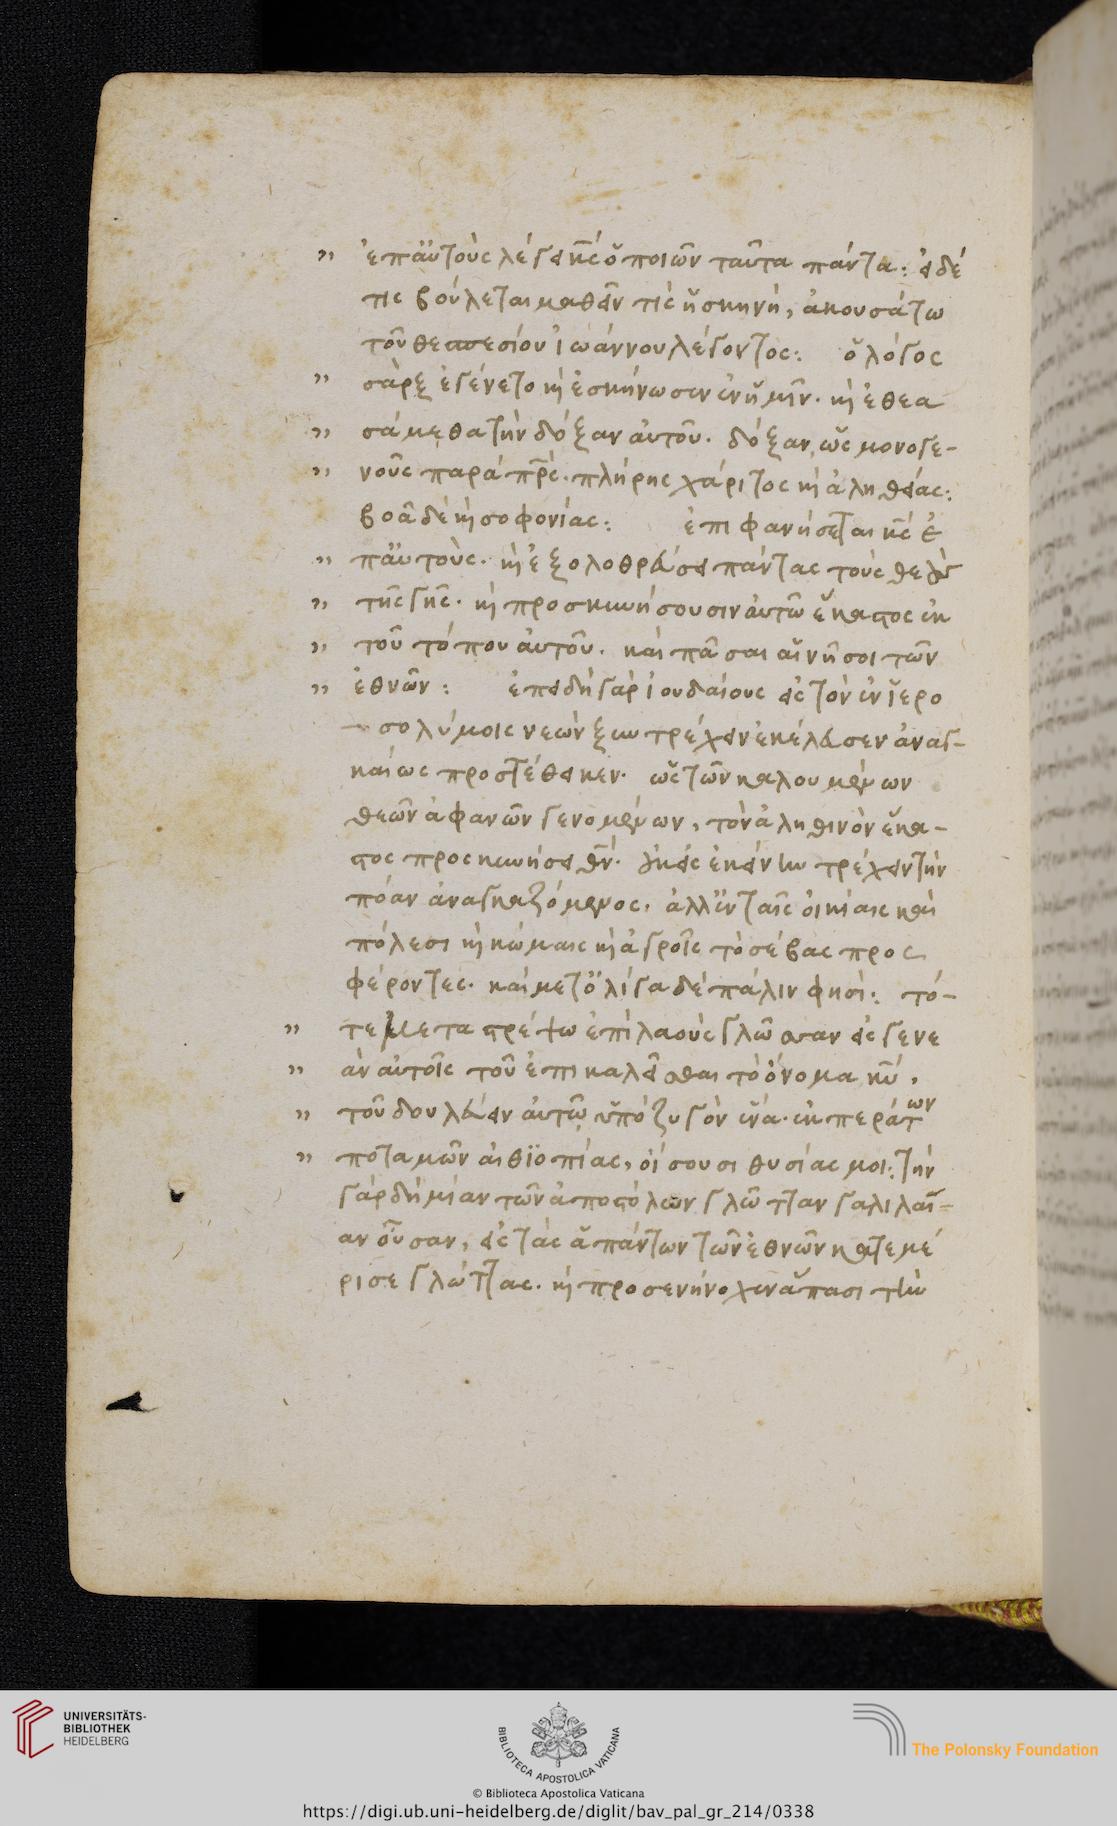 " ἐπ' αὐτοὺς λέγει κς ὁ ποιῶν ταῦτα πάντα: εἰ δέ
τις βούλεται μαθεῖν τίς ἡ σκηνὴ, ἀκουσάτω
τοῦ θεσπεσίου ἰωάννου λέγοντος: ὁ λόγος
" σὰρξ ἐγένετο καὶ ἐσκήνωσεν ἐν ἡμῖν. καὶ ἐθεα
" σάμεθα τὴν δόξαν αὐτοῦ. δόξαν ὡς μονογε-
" νοῦς παρὰ πρς. πλήρης χάριτος καὶ ἀληθείας:
βοᾶ δὲ καὶ σοφονίας: ἐπιφανήσεται κς ἐ
" π' αὐτούς. καὶ ἐξολοθρεύσει πάντας τοὺς θεοὺς
" τῆς γῆς. καὶ προσκυνήσουσιν αὐτῶ ἕκαστος ἐκ
" τοῦ τόπου αὐτοῦ. καὶ πᾶσαι αἱ νῆσοι τῶν
" ἐθνῶν: ἐπειδὴ γὰρ ἰουδαίους εἰς τὸν ἐν ἱερο
σολύμοις νεὼν ξυντρέχειν ἐκέλευσεν ἀναγ-
καίως προστέθεικεν. ὡς τῶν καλουμένων
θεῶν ἀφανῶν γενομένων, τὸν ἀληθινὸν ἕκα-
στος προσκυνήσει θν. οὐκ εἰς ἐκείνην τρέχειν τὴν
πόλιν ἀναγκαζόμενος, ἀλλ' ἐν ταῖς οἰκίαις καὶ
πόλεσι καὶ κώμαις καὶ ἀγροῖς τὸ σέβας προσ
φέροντες. καὶ μετ' ὀλίγα δὲ πάλιν φησί: τό-
" τε μεταστρέψω ἐπὶ λαοὺς γλῶσσαν εἰς γενε
" ὰν αὐτοῖς τοῦ ἐπικαλεῖσθαι τὸ ὄνομα κυ,
" τοῦ δουλεύειν αὐτῶ ὑπὸ ζυγὸν ἕνα. ἐκ περάτων
" ποταμῶν αἰθϊοπίας, οἴσουσι θυσίας μοι: τὴν
γὰρ δὴ μίαν τῶν ἀποστόλων γλῶτταν γαλιλαί-
αν οὖσαν, εἰς τὰς ἁπάντων τῶν ἐθνῶν κατεμέ
ρισε γλώττας. καὶ προσενήνοχεν ἅπασι τὴν
UNIVERSITÄTS-
BIBLIOTHEK
HEIDELBERG
BIBLIOTECA APOSTOLICA VATICANA
The Polonsky Foundation
© Biblioteca Apostolica Vaticana
https://digi.ub.uni-heidelberg.de/diglit/bav_pal_gr_214/0338